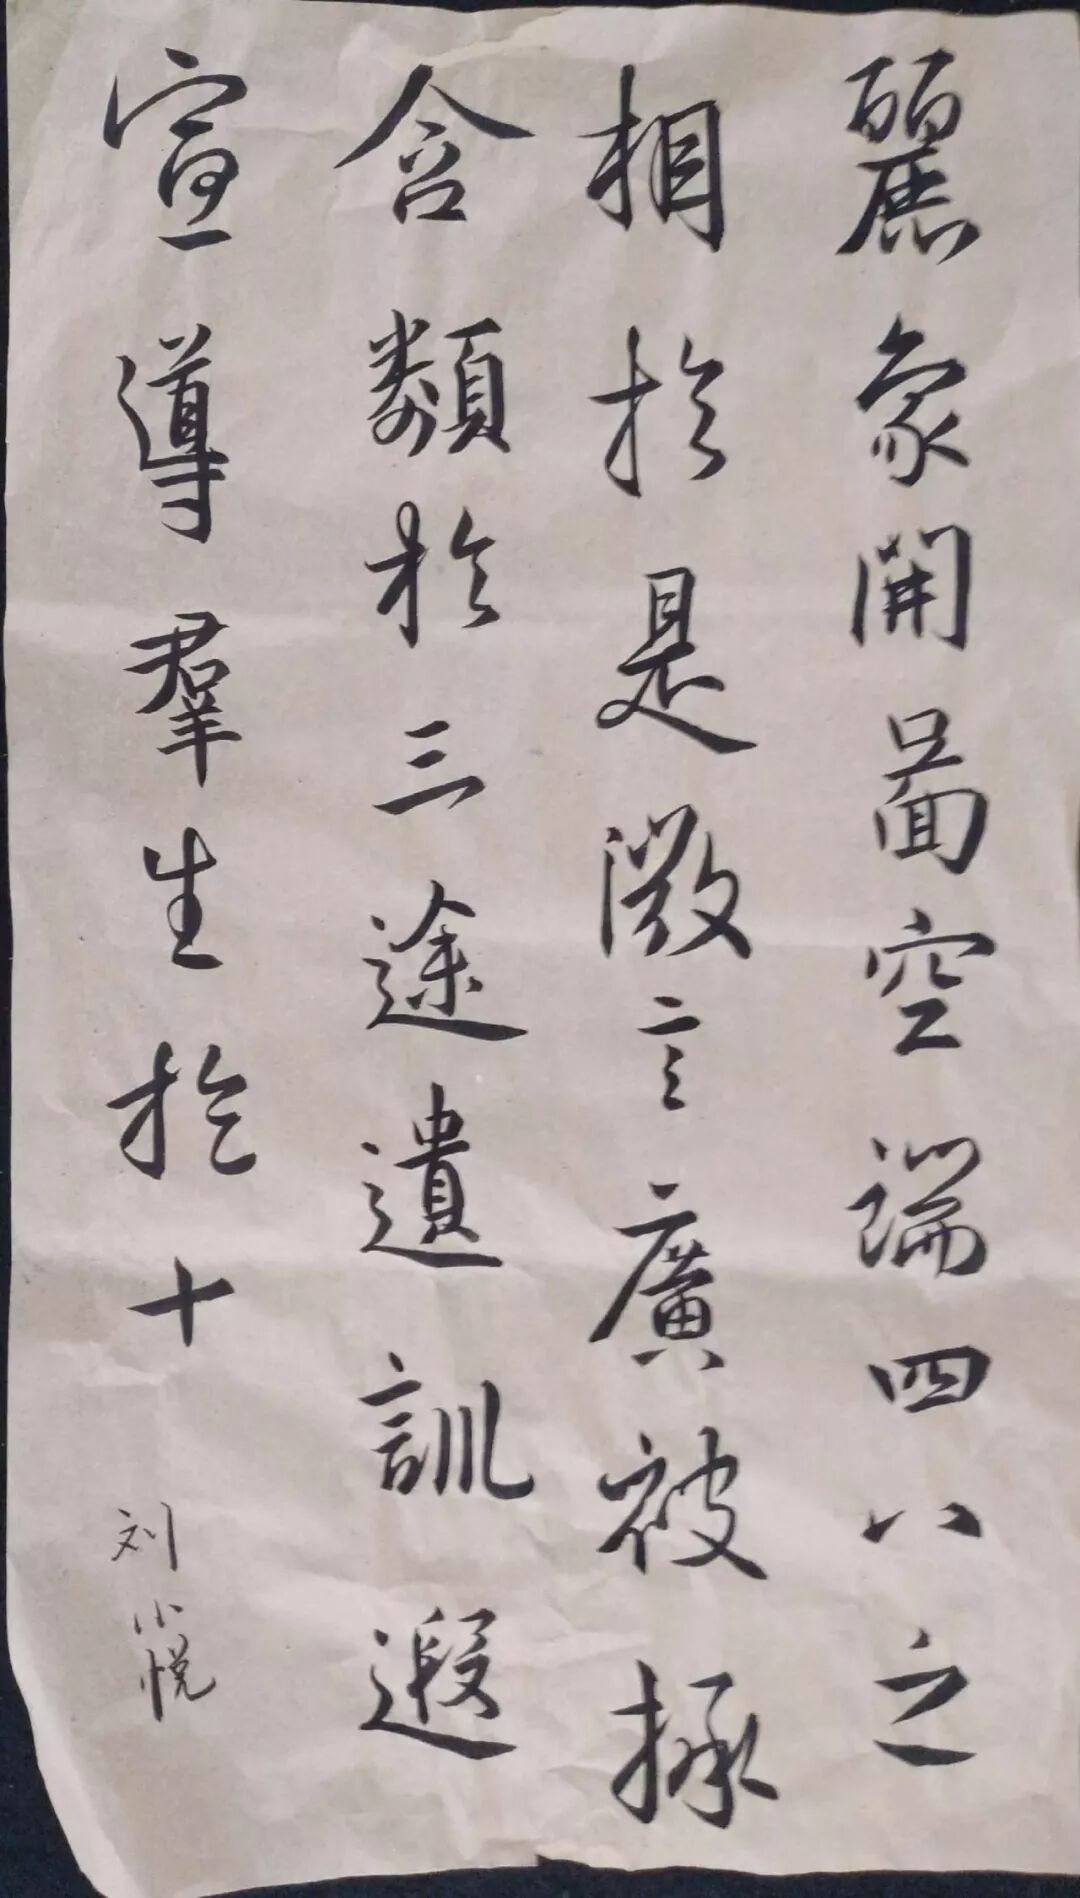 麗象開啚空端四八之
相於是微言廣被拯
含類於三途遺訓遐
宣導羣生於十
刘小悦